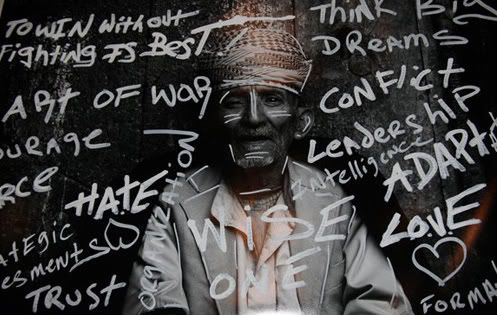 TO WIN WITHOUT
FIGHTING IS BEST
THINK BIG
DREAMS
ART OF WAR
CONFLICT
LEADERSHIP
Intelligence
ADAPT
OURAGE
RCE
HATE
ORGANIZATION
WISE
ONE
LOVE
ATEGIC
ESMENTS
TRUST
FORMA